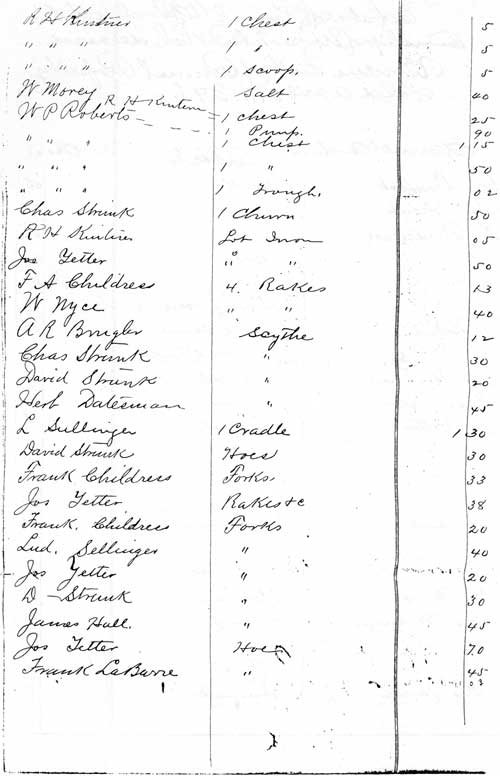 R H Kintner 1 Chest 5
" " " 1 " 5
" " " 1 Scoop. 5
W Morey Salt 40
W P Roberts R H Kintner 1 Chest 25
1 Pump. 90
" " " 1 Chest 1 15
" " " 1 " 50
" " " 1 Trough. 02
Chas Strunk 1 Churn 50
R H Kintner Lot Iron 05
Jos Yetter " " 50
F A Childress 4. Rakes 13
W Nyce " " 40
A R Brugler Scythe 12
Chas Strunk " 30
David Strunk " 20
Herb Datesman " 45
L Sullinger 1 Cradle 1 30
David Strunk Hoes 30
Frank Childress Forks. 33
Jos Yetter Rakes &c 38
Frank. Childress Forks 20
Lud. Sellinger " 40
Jos Yetter " 20
D - Strunk " 30
James Hall. " 45
Jos Yetter Hoes 70
Frank LaBarre " 45
03